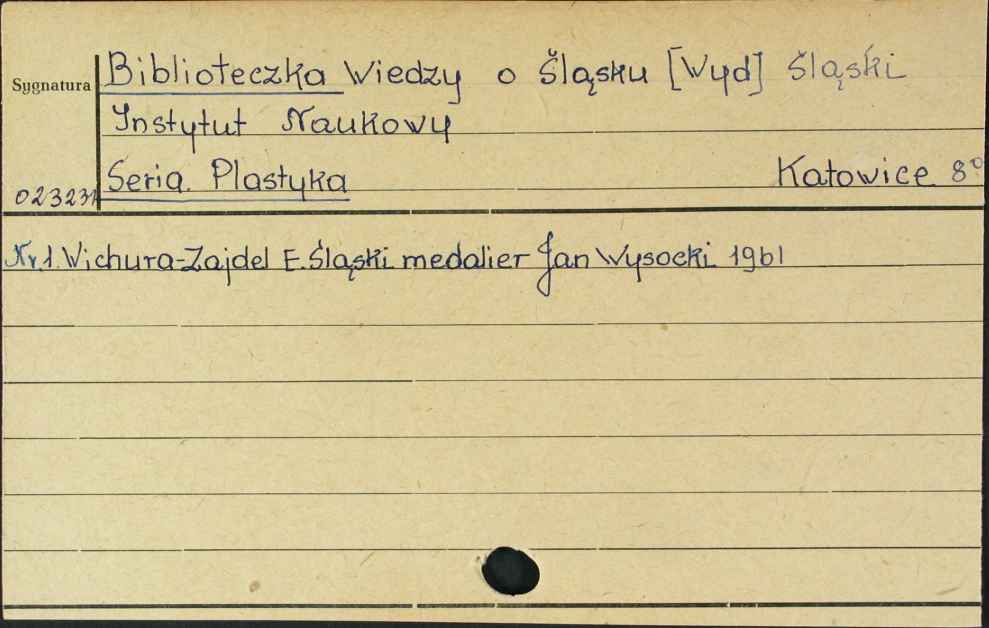 Sygnatura Biblioteczka Wiedzy o Śląsku [Wyd] Śląski
Instytut Naukowy
023231 Seria Plastyka Katowice 8°
Nr 1. Wichura-Zajdel E. Śląski medalier Jan Wysocki 1961